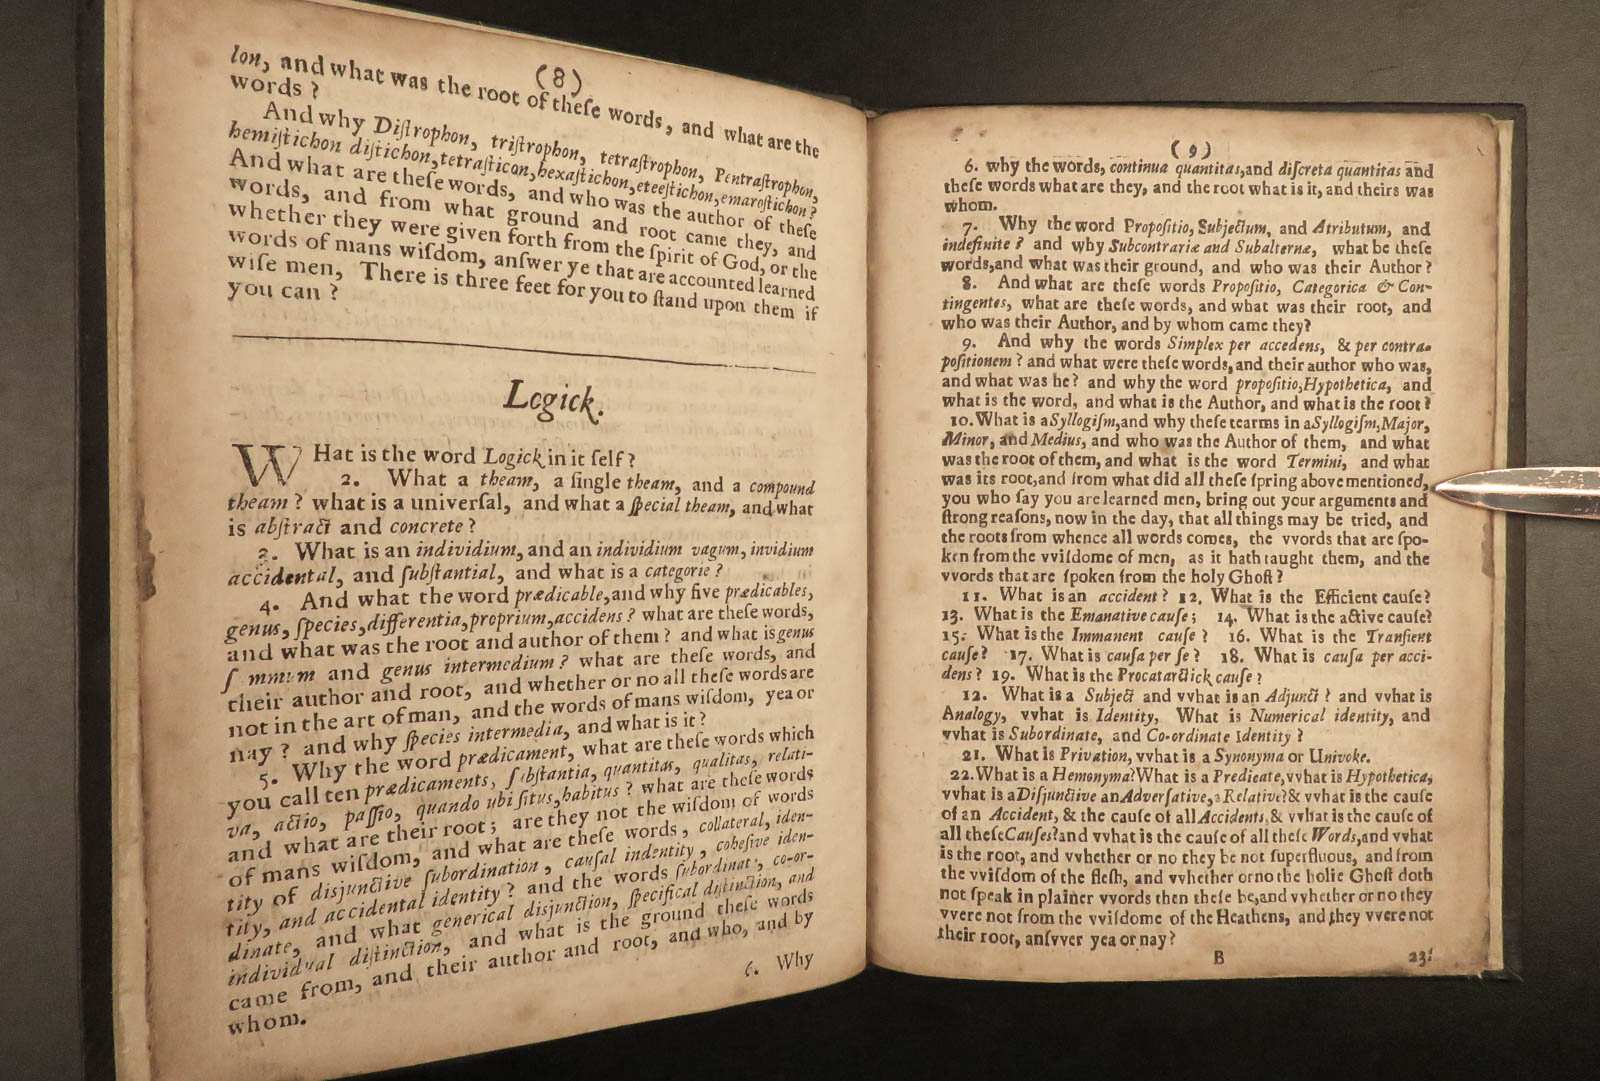 (8)
lon, and what was the root of theſe words, and what are the
words ?
And why Diſtrophon, triſtrophon, tetraſtrophon, Pentraſtrophon,
hemiſtichon diſtichon, tetraſticon, hexaſtichon, eteeſtichon, emaroſtichon?
And what are theſe words, and who was the author of theſe
words, and from what ground and root came they, and
whether they were given forth from the ſpirit of God, or the
words of mans wiſdom, anſwer ye that are accounted learned
wiſe men, There is three feet for you to ſtand upon them if
you can ?
Logick.
WHat is the word Logick in it ſelf ?
2. What a theam, a ſingle theam, and a compound
theam ? what is a univerſal, and what a ſpecial theam, and what
is abſtract and concrete ?
3. What is an individium, and an individium vagum, invidium
accidental, and ſubſtantial, and what is a categorie ?
4. And what the word prædicable, and why five prædicables,
genus, ſpecies, differentia, proprium, accidens ? what are theſe words,
and what was the root and author of them ? and what is genus
ſ mmum and genus intermedium ? what are theſe words, and
their author and root, and whether or no all theſe words are
not in the art of man, and the words of mans wiſdom, yea or
nay ? and why ſpecies intermedia, and what is it ?
5. Why the word prædicament, what are theſe words which
you call ten prædicaments, ſubſtantia, quantitas, qualitas, relati-
va, actio, paſſio, quando ubi ſitus, habitus ? what are theſe words
and what are their root; are they not the wiſdom of words
of mans wiſdom, and what are theſe words, collateral, iden-
tity of disjunctive ſubordination, cauſal indentity, coheſive iden-
tity, and accidental identity ? and the words ſubordinat, co-or-
dinate, and what generical disjunction, ſpecifical diſtinction, and
individual diſtinction, and what is the ground theſe words
came from, and their author and root, and who, and by
whom.
6. Why
(9)
6. why the words, continua quantitas, and diſcreta quantitas and
theſe words what are they, and the root what is it, and theirs was
whom.
7. Why the word Propoſitio, Subjectum, and Atributum, and
indefinite ? and why Subcontrariæ and Subalternæ, what be theſe
words, and what was their ground, and who was their Author ?
8. And what are theſe words Propoſitio, Categorica & Con-
tingentes, what are theſe words, and what was their root, and
who was their Author, and by whom came they?
9. And why the words Simplex per accedens, & per contra-
poſitionem ? and what were theſe words, and their author who was,
and what was he? and why the word propoſitio, Hypothetica, and
what is the word, and what is the Author, and what is the root ?
10. What is a Syllogiſm, and why theſe tearms in a Syllogiſm, Major,
Minor, and Medius, and who was the Author of them, and what
was the root of them, and what is the word Termini, and what
was its root, and from what did all theſe ſpring above mentioned,
you who ſay you are learned men, bring out your arguments and
ſtrong reaſons, now in the day, that all things may be tried, and
the roots from whence all words comes, the vvords that are ſpo-
ken from the vviſdome of men, as it hath taught them, and the
vvords that are ſpoken from the holy Ghoſt ?
11. What is an accident ? 12. What is the Efficient cauſe?
13. What is the Emanative cauſe; 14. What is the active cauſe?
15. What is the Immanent cauſe ? 16. What is the Tranſient
cauſe? 17. What is cauſa per ſe ? 18. What is cauſa per acci-
dens ? 19. What is the Procatarctick cauſe ?
12. What is a Subject and vvhat is an Adjunct ? and vvhat is
Analogy, vvhat is Identity, What is Numerical identity, and
vvhat is Subordinate, and Co-ordinate Identity ?
21. What is Privation, vvhat is a Synonyma or Univoke.
22. What is a Hemonyma? What is a Predicate, vvhat is Hypothetica,
vvhat is a Disjunctive an Adverſative, a Relative? & vvhat is the cauſe
of an Accident, & the cauſe of all Accidents, & vvhat is the cauſe of
all theſe Cauſes? and vvhat is the cauſe of all theſe Words, and vvhat
is the root, and vvhether or no they be not ſuperfluous, and from
the vviſdom of the fleſh, and vvhether or no the holie Ghoſt doth
not ſpeak in plainer vvords then theſe be, and vvhether or no they
vvere not from the vviſdome of the Heathens, and they vvere not
their root, anſvver yea or nay ?
B
23.